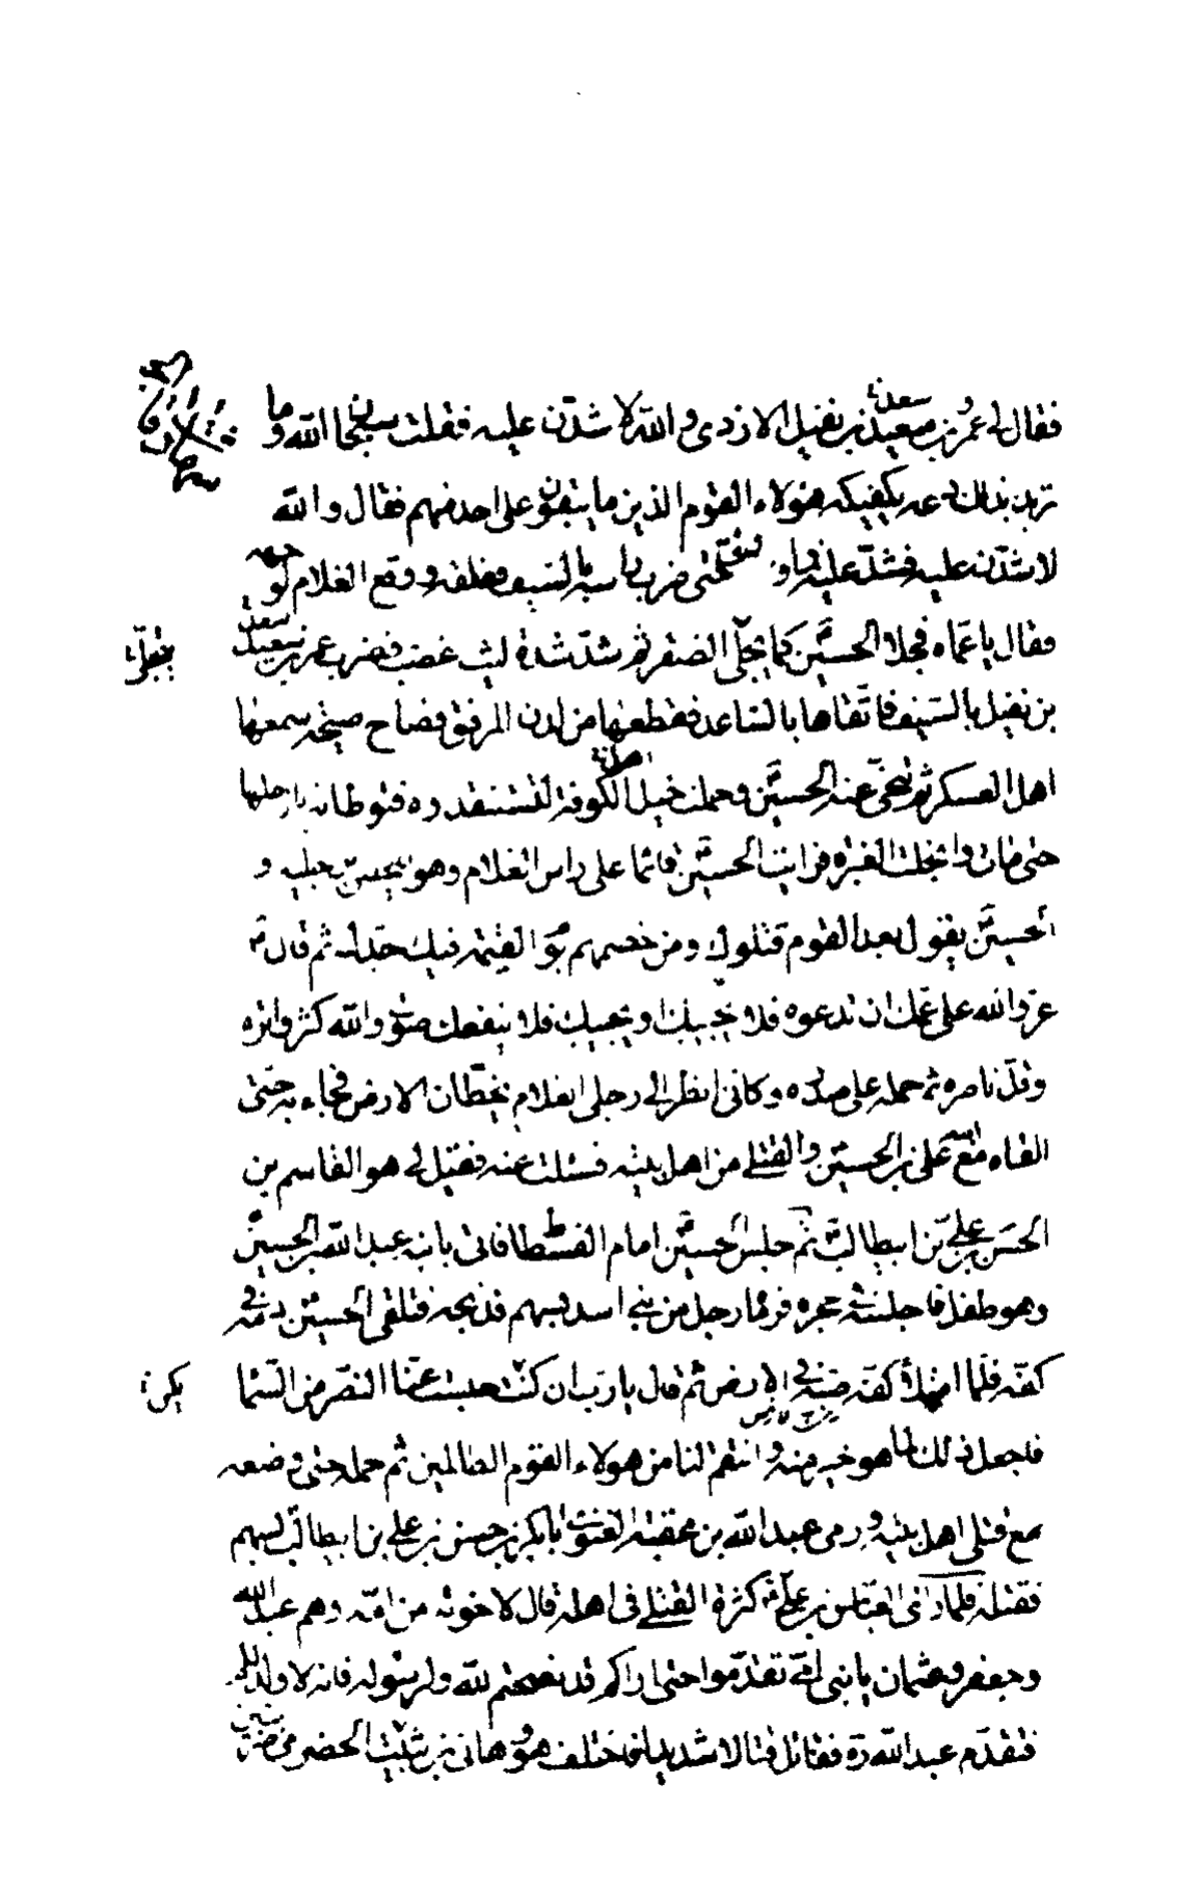 فقال لي عمر بن سعيد بن نفيل الازدي والله لاشدّن عليه فقلت سبحان الله وما
تريد بذلك دعه يكفيكه هؤلاء القوم الذين ما يبقون على احد منهم فقال والله
لاشدّن عليه فشدّ عليه فما ولّى حتى ضرب راسه بالسيف ففلقه ووقع الغلام لوجهه
فقال يا عمّاه فجلا الحسين كما يجلّي الصقر ثم شدّ شدة ليث غضب فضرب عمر بن سعيد
بن نفيل بالسيف فاتّقاها بالساعد فقطعها من لدن المرفق فصاح صيحة سمعها
اهل العسكر ثم تنحّى عنه الحسين وحملت خيل الكوفة لتستنقذه فتوطأنه بارجلها
حتى مات وانجلت الغبرة فرايت الحسين قائما على راس الغلام وهو يفحص برجليه و
الحسين يقول بعدا لقوم قتلوك ومن خصمهم يوم القيمة فيك جدك ثم قال
عزّ والله على عمّك ان تدعوه فلا يجيبك او يجيبك فلا ينفعك صوت والله كثر واتره
وقلّ ناصره ثم حمله على صدره وكاني انظر الى رجلي الغلام يخطّان الارض فجاء به حتى
القاه مع ابنه علي بن الحسين والقتلى من اهل بيته فسئلت عنه فقيل لي هو القاسم بن
الحسن بن علي بن ابيطالب ثم جلس الحسين امام الفسطاط فاتي بابنه عبد الله بن الحسين
وهو طفل فاجلسه في حجره فرماه رجل من بني اسد بسهم فذبحه فتلقى الحسين دمه في
كفّه فلمّا امتلأ كفّه صبّه في الارض ثم قال يا ربّ ان كنت حبست عنّا النصر من السماء
فاجعل ذلك لما هو خير منه وانتقم لنا من هولاء القوم الظالمين ثم حمله حتى وضعه
مع قتلى اهل بيته ورمى عبد الله بن عقبة الغنوي ابا بكر بن حسن بن علي بن ابيطالب بسهم
فقتله فلما راى العباس بن علي كثرة القتلى في اهله قال لاخوته من امّه وهم عبد الله
وجعفر وعثمان يا بني امّي تقدّموا حتى اراكم قد نصحتم لله ولرسوله فانه لا ولد لكم
فتقدّم عبد الله ره فقاتل قتالا شديدا فاختلف هو وهاني بن ثبيت الحضرمي ضربتين